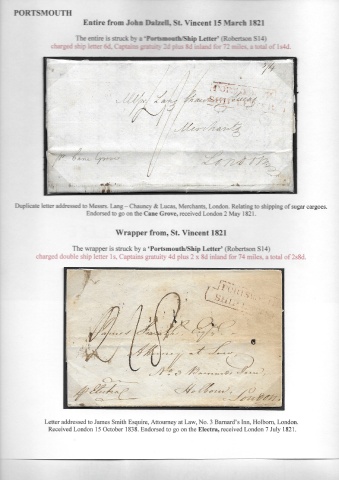 PORTSMOUTH
Entire from John Dalzell, St. Vincent 15 March 1821
The entire is struck by a 'Portsmouth/Ship Letter' (Robertson S14)
charged ship letter 6d, Captains gratuity 2d plus 8d inland for 72 miles, a total of 1s4d.
1/4
Messrs Lang Chauncy & Lucas
Merchants
London
Cane Grove
Duplicate letter addressed to Messrs. Lang – Chauncy & Lucas, Merchants, London. Relating to shipping of sugar cargoes.
Endorsed to go on the Cane Grove, received London 2 May 1821.
Wrapper from, St. Vincent 1821
The wrapper is struck by a 'Portsmouth/Ship Letter' (Robertson S14)
charged double ship letter 1s, Captains gratuity 4d plus 2 x 8d inland for 74 miles, a total of 2s8d.
2/8
James Smith Esqr
Attorney at Law
No 3 Barnard's Inn
Holborn
London
p Electra
Letter addressed to James Smith Esquire, Attourney at Law, No. 3 Barnard's Inn, Holborn, London.
Received London 15 October 1838. Endorsed to go on the Electra, received London 7 July 1821.